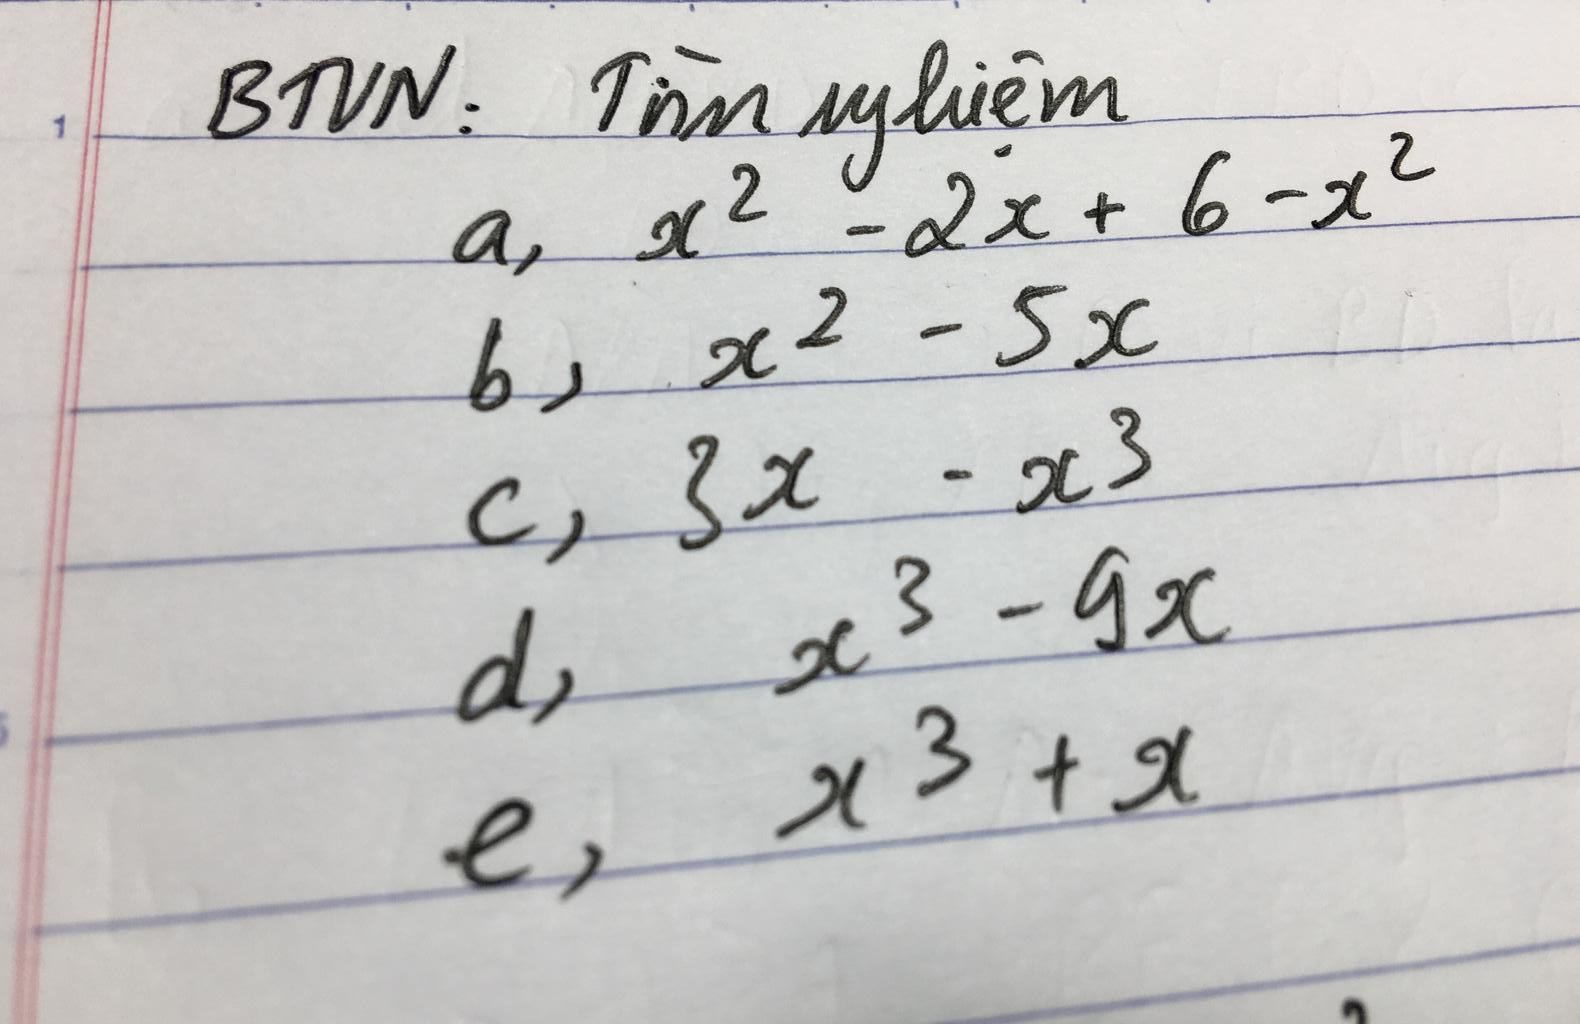 BTVN: Tìm nghiệm
1
a, x² - 2x + 6 - x²
b, x² - 5x
c, 3x - x³
d, x³ - 9x
5
e, x³ + x